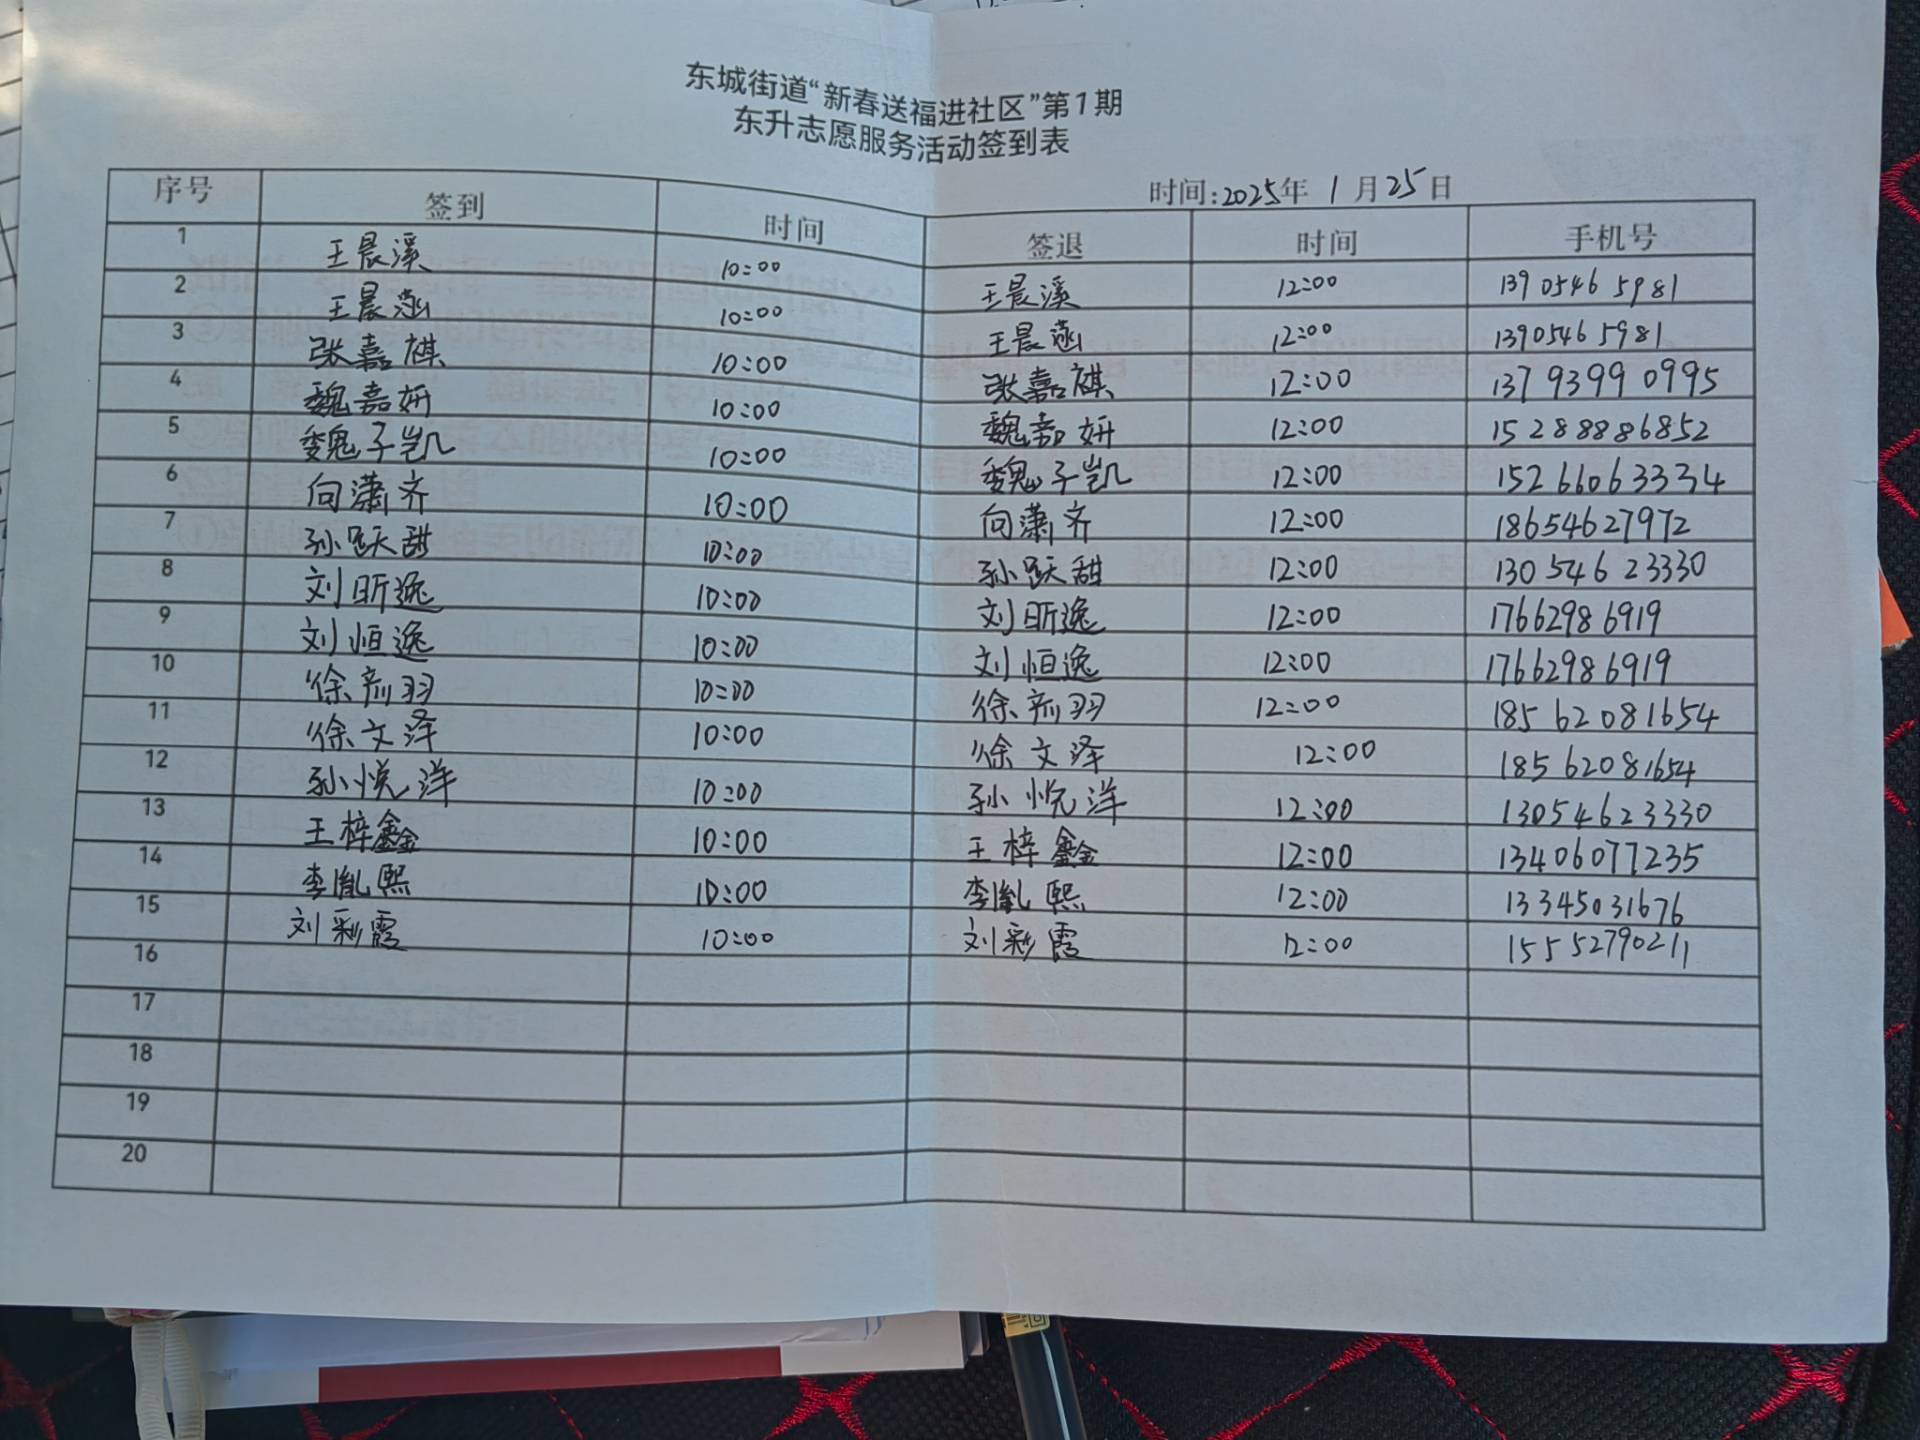 东城街道“新春送福进社区”第1期
东升志愿服务活动签到表
时间:2025年 1 月25日
序号 签到 时间 签退 时间 手机号
1 王晨溪 10:00 王晨溪 12:00 13905465981
2 王晨菡 10:00 王晨菡 12:00 13905465981
3 张嘉祺 10:00 张嘉祺 12:00 13793990995
4 魏嘉妍 10:00 魏嘉妍 12:00 15288886852
5 魏子凯 10:00 魏子凯 12:00 15266063334
6 向潇齐 10:00 向潇齐 12:00 18654627972
7 孙跃甜 10:00 孙跃甜 12:00 13054623330
8 刘昕逸 10:00 刘昕逸 12:00 17662986919
9 刘恒逸 10:00 刘恒逸 12:00 17662986919
10 徐羽 10:00 徐羽 12:00 18562081654
11 徐文泽 10:00 徐文泽 12:00 18562081654
12 孙悦洋 10:00 孙悦洋 12:00 13054623330
13 王梓鑫 10:00 王梓鑫 12:00 13406077235
14 李胤熙 10:00 李胤熙 12:00 13345031676
15 刘彩霞 10:00 刘彩霞 12:00 15552790211
16
17
18
19
20